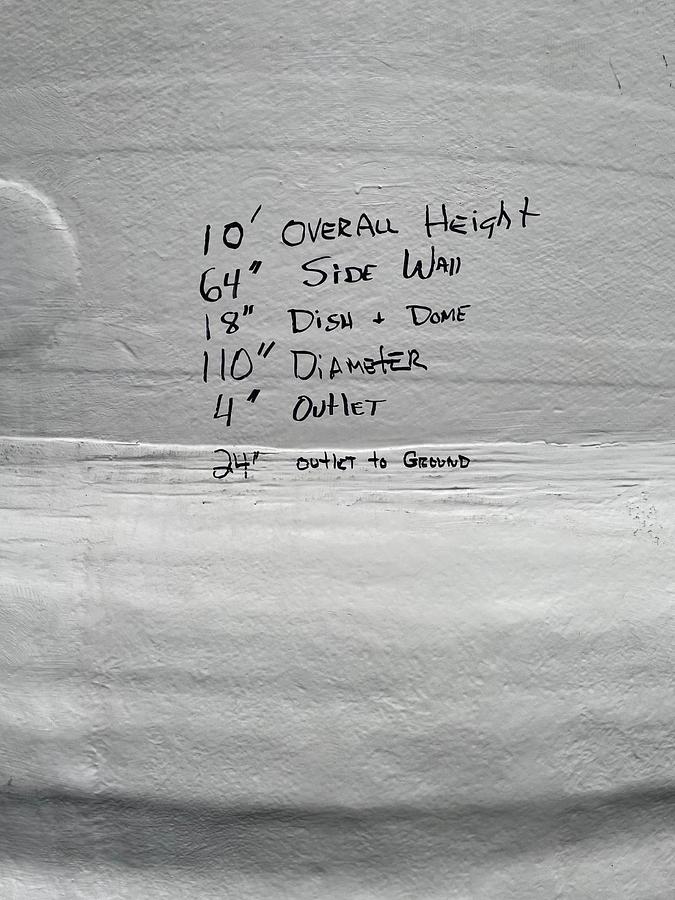 10' OVERALL Height
64" SIDE WAll
18" DISH + DOME
110" DIAMETER
4" OUtLET
24" outlet to GROUND